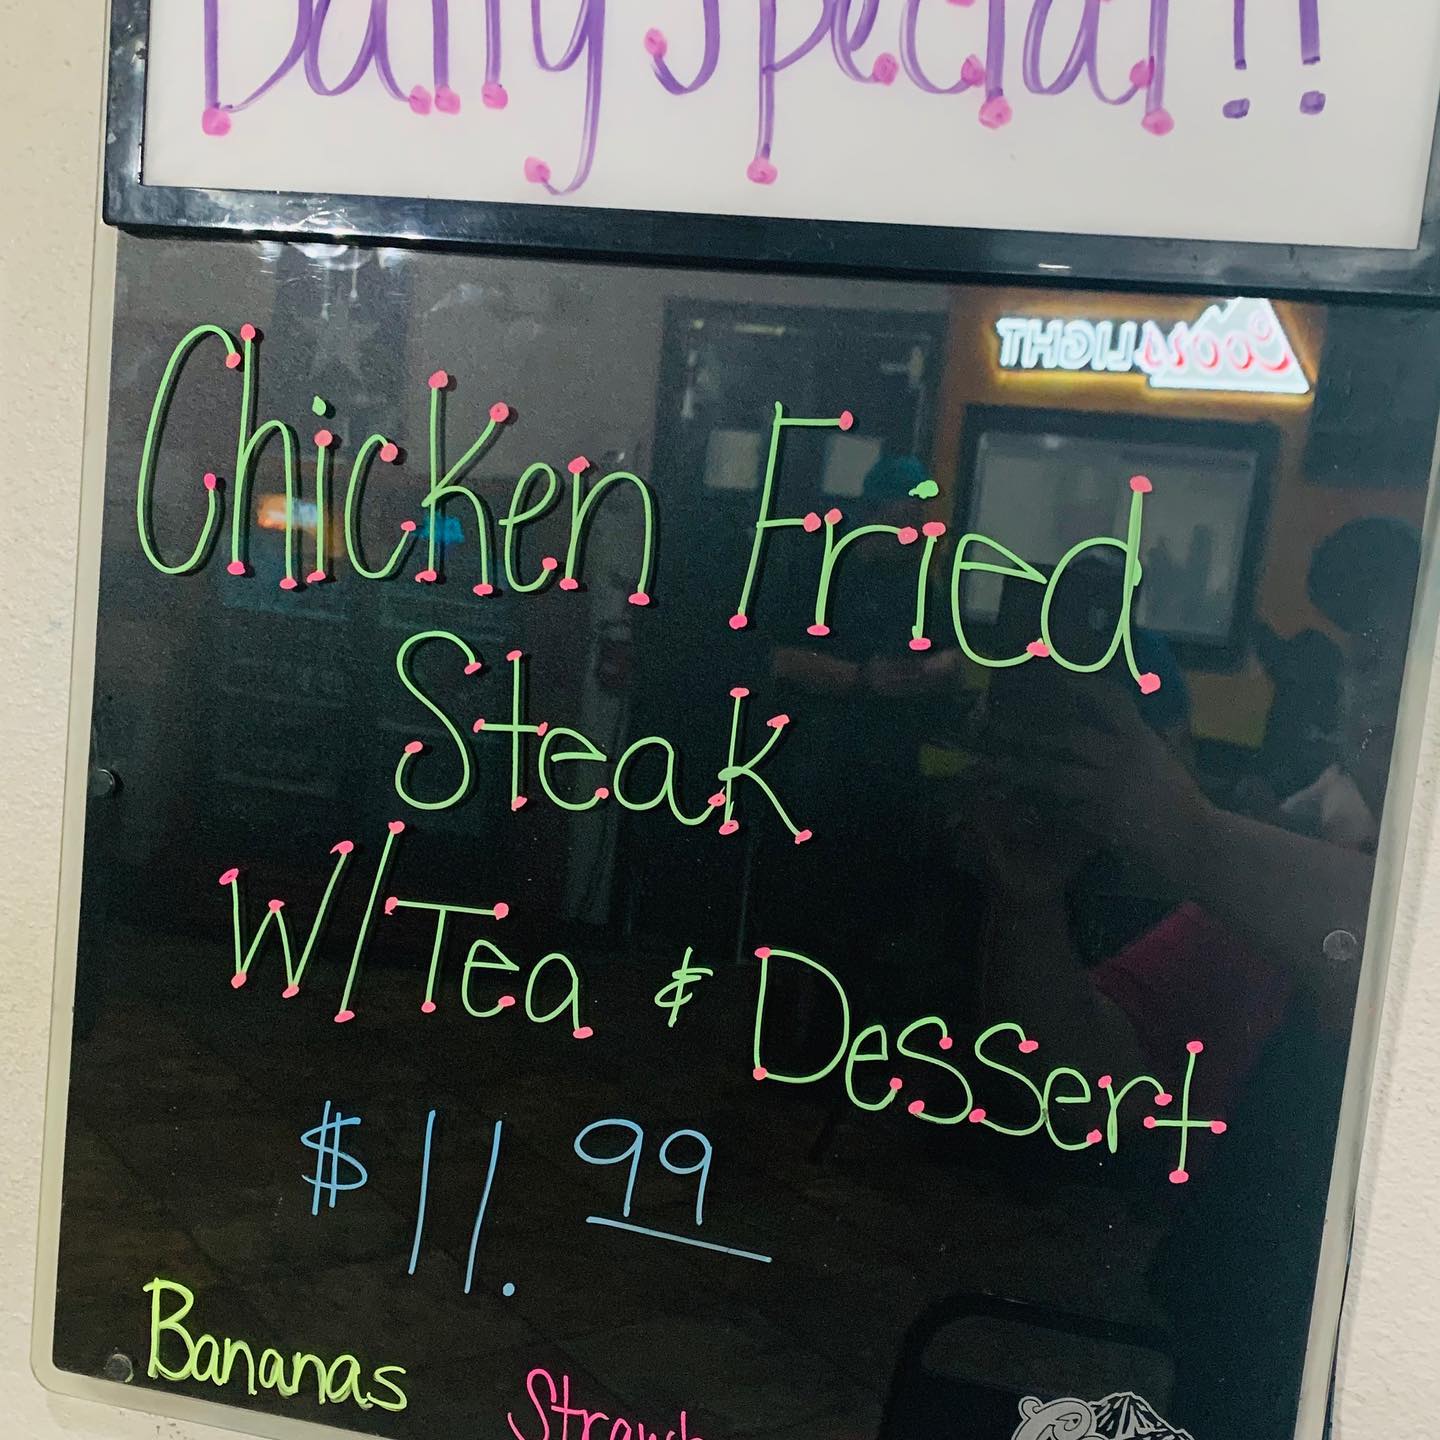 Daily Special!!
COORS LIGHT
Chicken Fried
Steak
W/Tea & Dessert
$11.99
Bananas